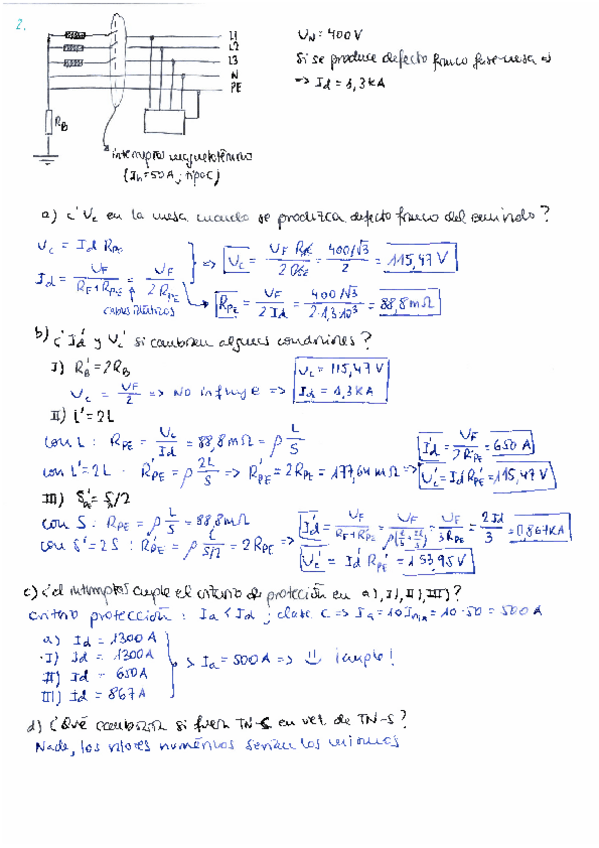 2.
L1
L2
L3
N
PE
R_B
interruptor magnetotérmico
(In=50A; tipo C)
U_N = 400V
Si se produce defecto franco fase-masa
=> Id = 1,3kA
a) ¿Uc en la masa cuando se produzca defecto franco del ?
Uc = Id R_PE
Id = U_F / (R_F + R_PE) = U_F / 2R_PE
cables idénticos
=> Uc = U_F R_PE / 2R_PE = 400/√3 / 2 = 115,47 V
R_PE = U_F / 2Id = 400/√3 / 2·1,3·10³ = 88,8mΩ
b) ¿Id' y Uc' si cambian algunas condiciones?
I) R_B' = 2R_B
Uc = U_F / 2 => NO influye => Uc = 115,47V
Id = 1,3kA
II) L' = 2L
con L: R_PE = Uc / Id = 88,8mΩ = ρ L/S
con L' = 2L · R_PE' = ρ 2L/S => R_PE' = 2R_PE = 177,64 mΩ =>
Id' = U_F / 2R_PE' = 650 A
Uc' = Id' R_PE' = 115,47V
III) S' = S/2
con S: R_PE = ρ L/S = 88,8mΩ
con S' = 2S: R_PE' = ρ L / S/2 = 2R_PE =>
Id' = U_F / (R_F + R_PE) = U_F / ρ(L/S + 2L/S) = U_F / 3R_PE = 2Id / 3 = 0,867kA
Uc' = Id' R_PE' = 153,95V
c) ¿el interruptor cumple el criterio de protección en a), I), II), III)?
Criterio protección: Ia < Id; clase C => Ia = 10 In = 10·50 = 500 A
a) Id = 1300 A
I) Id = 1300A
II) Id = 650A
III) Id = 867A
> Ia = 500A => ¡cumple!
d) ¿Qué cambiaría si fuera TN-C en vez de TN-S?
Nada, los valores numéricos serían los mismos